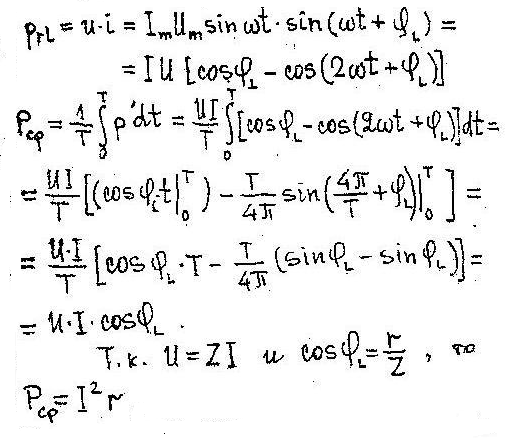 p_rL = u·i = I_m U_m sin ωt · sin(ωt + φ_L) =
= I U [cosφ_L − cos(2ωt + φ_L)]
P_ср = 1/T ∫_0^T p'dt = UI/T ∫_0^T [cosφ_L − cos(2ωt + φ_L)]dt =
= UI/T [(cosφ_L t|_0^T) − T/4π sin(4π/T + φ_L)|_0^T] =
= U·I/T [cosφ_L·T − T/4π (sinφ_L − sinφ_L)] =
= U·I·cosφ_L.
Т.к. U = ZI и cosφ_L = r/Z, то
P_ср = I²r